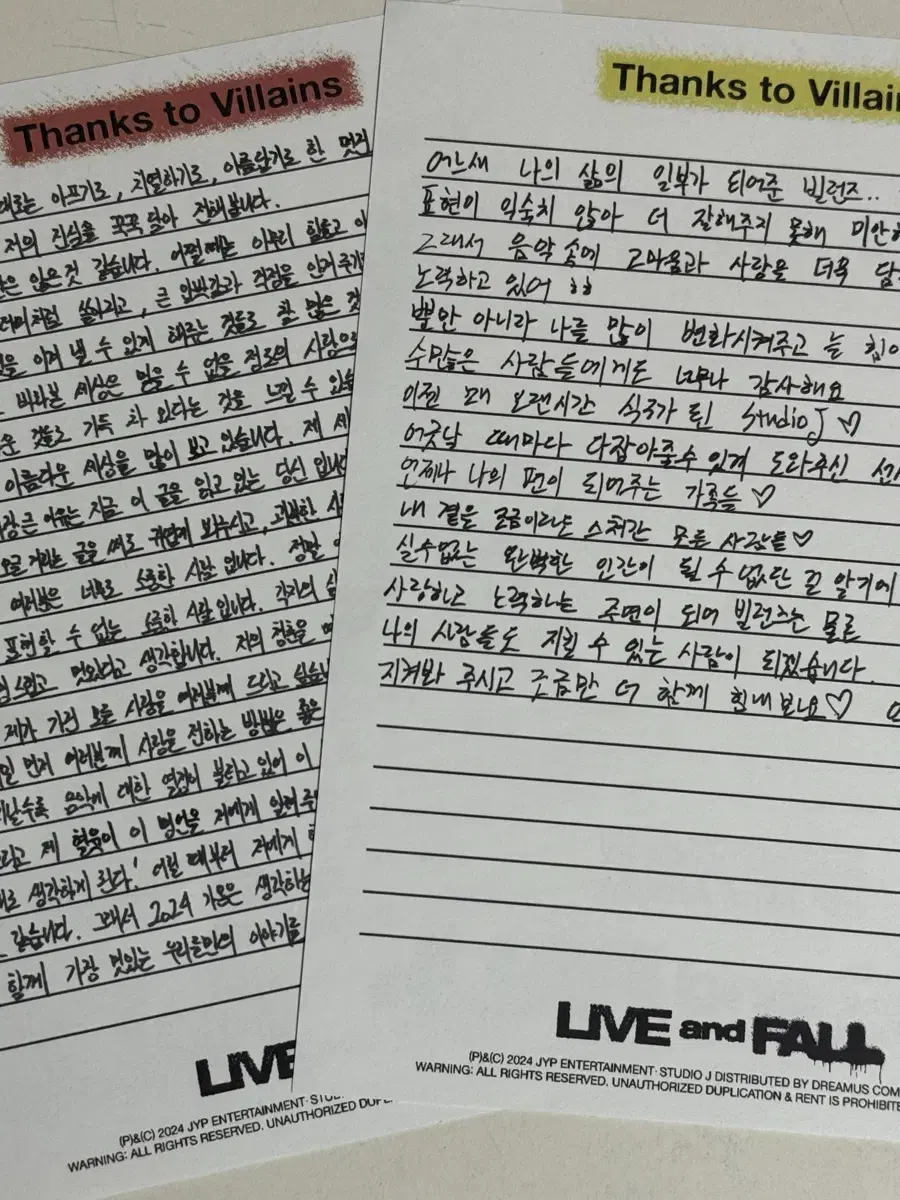 Thanks to Villains
아프기로, 치열하기로, 아름답기로 한 멋진
저의 진심을 꾹꾹 담아 전해봅니다.
않은 것 같습니다. 어쩔 때는 아무리 힘들고
쓸리고, 큰
이겨 낼 수 있게 해주는 것들도 참 많은
바라본 세상은 믿을 수 없을 정도의 사랑으로
것들로 가득 차 있다는 것을 느낄 수
아름다운 세상을 많이 보고 있습니다. 제
큰 이유는 지금 이 글을 읽고 있는 당신입니다
글을 써도 귀엽게 봐주시고,
여러분은 너무도 소중한 사람입니다. 정말
표현할 수 없는 소중한 사람입니다. 각자의
멋있다고 생각합니다. 저의 청춘을
제가 가진 모든 사랑을 여러분께 드리고 싶습니다
먼저 여러분께 사랑을 전하는 방법은 좋은
음악에 대한 열정이 불타고 있어 이
제 형윤이 이 명언을 저에게 알려주
생각하게 된다.' 어릴 때부터 저에게
같습니다. 그래서 2024 가온은 생각하는
함께 가장 멋있는 우리들만의 이야기를
LIVE
(P)&(C) 2024 JYP ENTERTAINMENT· STU
WARNING: ALL RIGHTS RESERVED. UNAUTHORIZED DUPL
Thanks to Villai
어느새 나의 삶의 일부가 되어준 빌런즈..
표현이 익숙치 않아 더 잘해주지 못해 미안하
그래서 음악 속에 고마움과 사랑을 더욱 담
노력하고 있어 ㅎㅎ
뿐만 아니라 나를 많이 변화시켜주고 늘 힘이
수많은 사람들에게도 너무나 감사해요
이젠 꽤 오랜시간 식구가 된 Studio J ♡
어긋날 때마다 다잡아줄수 있게 도와주신
언제나 나의 편이 되어주는 가족들 ♡
내 곁을 조금이라도 스쳐간 모든 사람들 ♡
실수없는 완벽한 인간이 될 수 없단 걸 알기에
사랑하고 노력하는 주연이 되어 빌런즈는 물론
나의 사람들도 지킬 수 있는 사람이 되겠습니다.
지켜봐 주시고 조금만 더 함께 힘내 보아요♡
LIVE and FALL
(P)&(C) 2024 JYP ENTERTAINMENT· STUDIO J DISTRIBUTED BY DREAMUS COM
WARNING: ALL RIGHTS RESERVED. UNAUTHORIZED DUPLICATION & RENT IS PROHIBITE